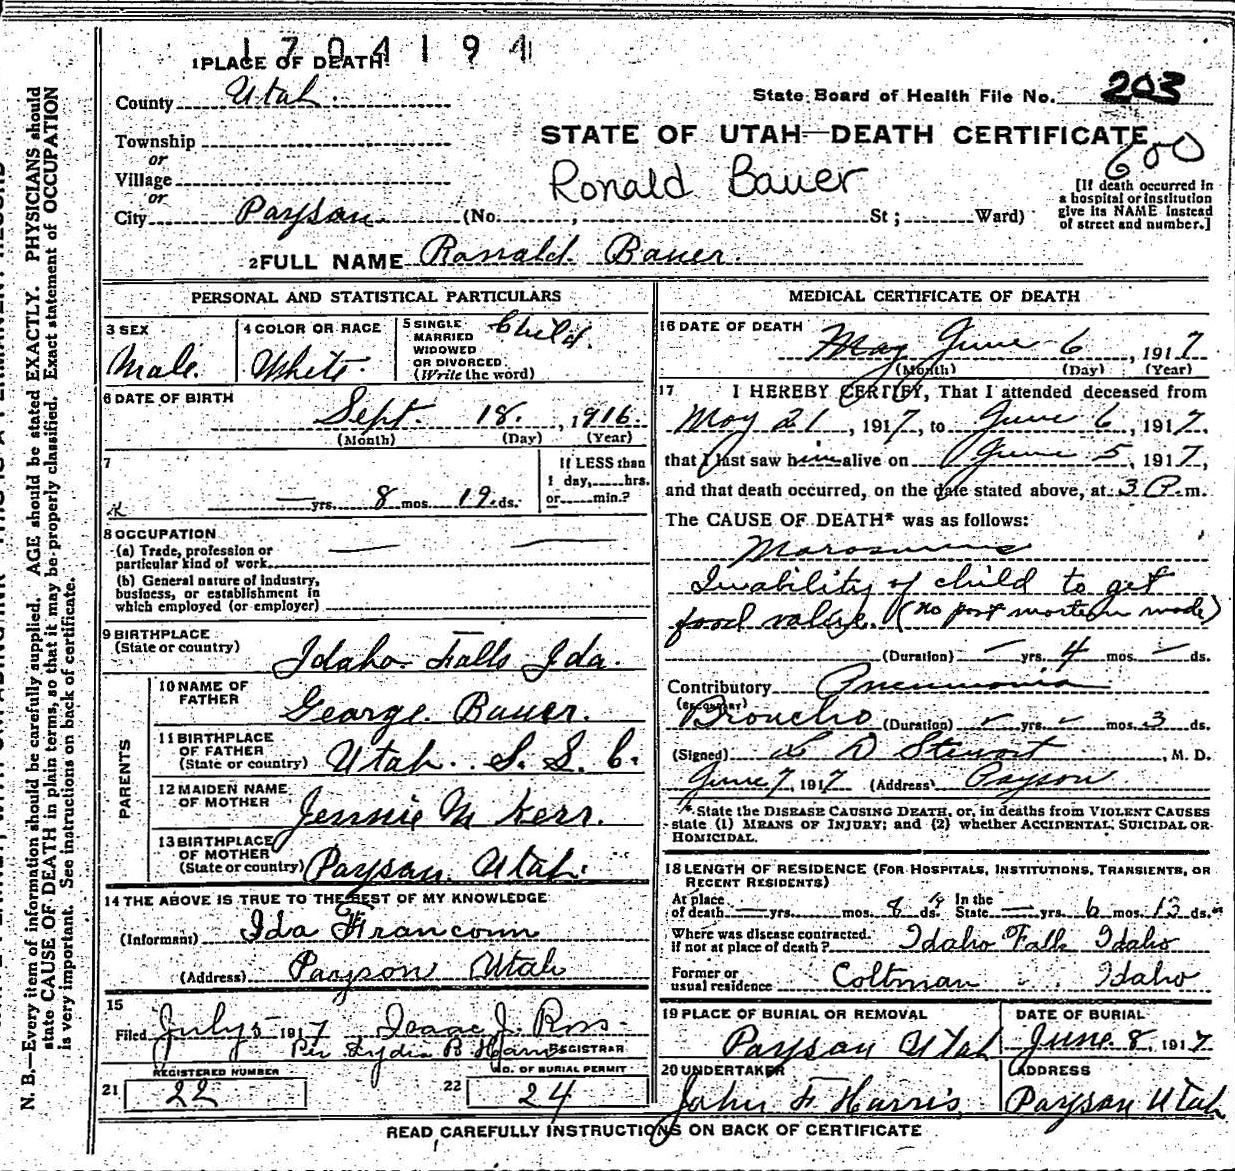 1704194
1 PLACE OF DEATH
County Utah
State Board of Health File No. 203
Township
or
Village
or
City Payson (No. ; St; Ward)
STATE OF UTAH—DEATH CERTIFICATE
600
Ronald Bauer
[If death occurred in
a hospital or institution
give its NAME instead
of street and number.]
2 FULL NAME Ronald Bauer.
PERSONAL AND STATISTICAL PARTICULARS
3 SEX
Male.
4 COLOR OR RACE
White
5 SINGLE
MARRIED
WIDOWED
OR DIVORCED
(Write the word)
Child.
6 DATE OF BIRTH
Sept. 18, 1916.
(Month) (Day) (Year)
7
— yrs. 8 mos. 19 ds.
If LESS than
1 day, hrs.
or min.?
8 OCCUPATION
(a) Trade, profession or
particular kind of work
(b) General nature of industry,
business, or establishment in
which employed (or employer)
9 BIRTHPLACE
(State or country)
Idaho Falls Ida.
PARENTS
10 NAME OF
FATHER
George Bauer.
11 BIRTHPLACE
OF FATHER
(State or country)
Utah. S. L. C.
12 MAIDEN NAME
OF MOTHER
Jennie M Kerr.
13 BIRTHPLACE
OF MOTHER
(State or country)
Payson Utah.
14 THE ABOVE IS TRUE TO THE BEST OF MY KNOWLEDGE
(Informant) Ida Francom
(Address) Payson Utah
15
Filed July 5 1917 Isaac J. Ross
Per Lydia B. REGISTRAR
REGISTERED NUMBER
21 22
NO. OF BURIAL PERMIT
22 24
MEDICAL CERTIFICATE OF DEATH
16 DATE OF DEATH
May June 6, 1917
(Month) (Day) (Year)
17 I HEREBY CERTIFY, That I attended deceased from
May 21, 1917, to June 6, 1917.
that I last saw him alive on June 5, 1917,
and that death occurred, on the date stated above, at 3 P. m.
The CAUSE OF DEATH* was as follows:
Marasmus
Inability of child to get
food value. (no post mortem made)
(Duration) — yrs. 4 mos. — ds.
Contributory Pneumonia
(SECONDARY)
Broncho (Duration) yrs. mos. 3 ds.
(Signed) L D Stewart, M. D.
June 7, 1917 (Address) Payson
*State the DISEASE CAUSING DEATH, or, in deaths from VIOLENT CAUSES
state (1) MEANS OF INJURY; and (2) whether ACCIDENTAL, SUICIDAL OR
HOMICIDAL.
18 LENGTH OF RESIDENCE (FOR HOSPITALS, INSTITUTIONS, TRANSIENTS, OR
RECENT RESIDENTS)
At place
of death — yrs. mos. ds.
In the
State — yrs. 6 mos. 13 ds.
Where was disease contracted,
if not at place of death? Idaho Falls Idaho
Former or
usual residence Coltman Idaho
19 PLACE OF BURIAL OR REMOVAL
Payson Utah
DATE OF BURIAL
June 8, 1917
20 UNDERTAKER
John F Harris
ADDRESS
Payson Utah
READ CAREFULLY INSTRUCTIONS ON BACK OF CERTIFICATE
N. B.—Every item of information should be carefully supplied. AGE should be stated EXACTLY. PHYSICIANS should
state CAUSE OF DEATH in plain terms, so that it may be properly classified. Exact statement of OCCUPATION
is very important. See instructions on back of certificate.